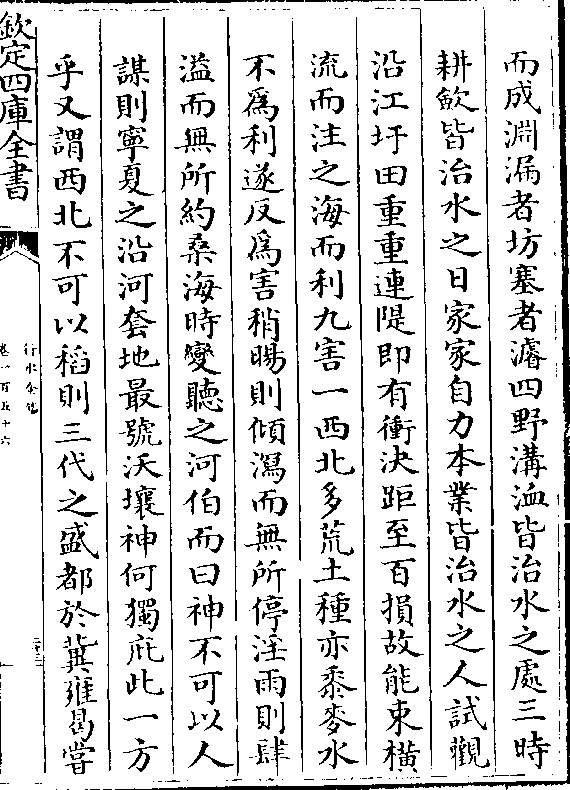 而成淵漏者坊塞者濬四野溝洫皆治水之處三時
耕歛皆治水之日家家自力本業皆治水之人試觀
沿江圩田重重連隄即有衝決距至百損故能束橫
流而注之海而利九害一西北多荒土種亦黍麥水
不爲利遂反爲害稍暘則傾瀉而無所停淫雨則肆
溢而無所約桑海時變聽之河伯而曰神不可以人
謀則寧夏之沿河套地最號沃壤神何獨庇此一方
乎又謂西北不可以稻則三代之盛都於冀雍曷嘗
欽定四庫全書
行水金鑑
卷一百五十六